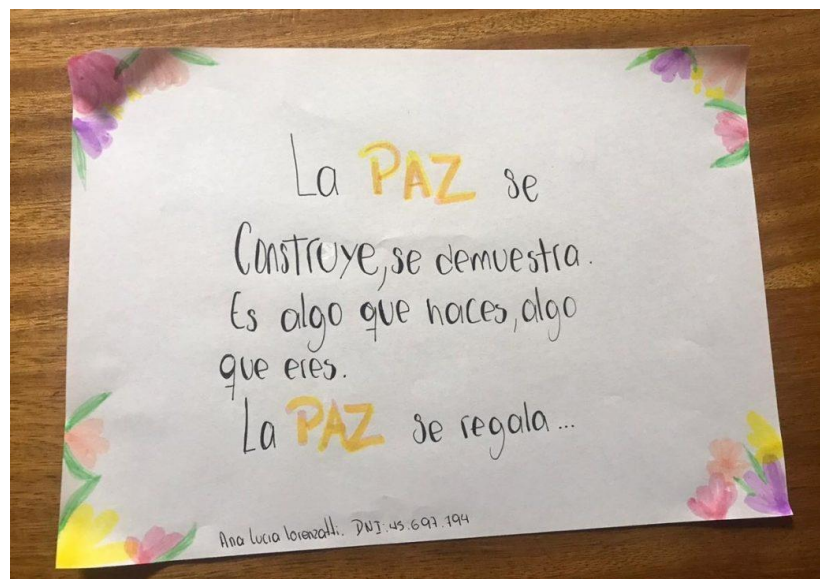 La PAZ se
Construye, se demuestra.
Es algo que haces, algo
que eres.
La PAZ se regala...
Ana Lucia Lorenzatti. DNI: 45.697.794